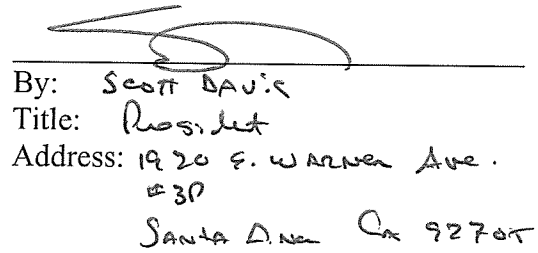 By: Scott Davis
Title: President
Address: 1920 E. Warner Ave.
#3P
Santa Ana Ca 92705